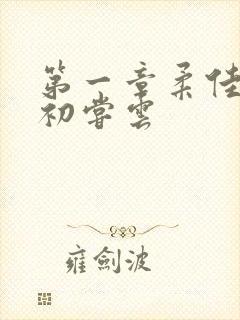 第一章柔佳
初尝雲
雍劍波